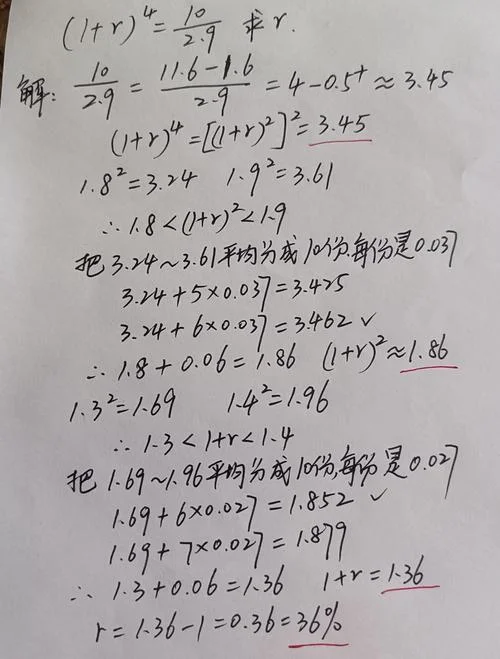 (1+r)⁴=10/2.9 求r.
解: 10/2.9 = (11.6-1.6)/2.9 = 4-0.5⁺≈3.45
(1+r)⁴=[(1+r)²]²=3.45
1.8²=3.24 1.9²=3.61
∴ 1.8<(1+r)²<1.9
把3.24~3.61平均分成10份,每份是0.037
3.24+5×0.037=3.425
3.24+6×0.037=3.462 ✓
∴ 1.8+0.06=1.86 (1+r)²≈1.86
1.3²=1.69 1.4²=1.96
∴ 1.3<1+r<1.4
把1.69~1.96平均分成10份,每份是0.027
1.69+6×0.027=1.852 ✓
1.69+7×0.027=1.879
∴ 1.3+0.06=1.36 1+r=1.36
r=1.36-1=0.36=36%